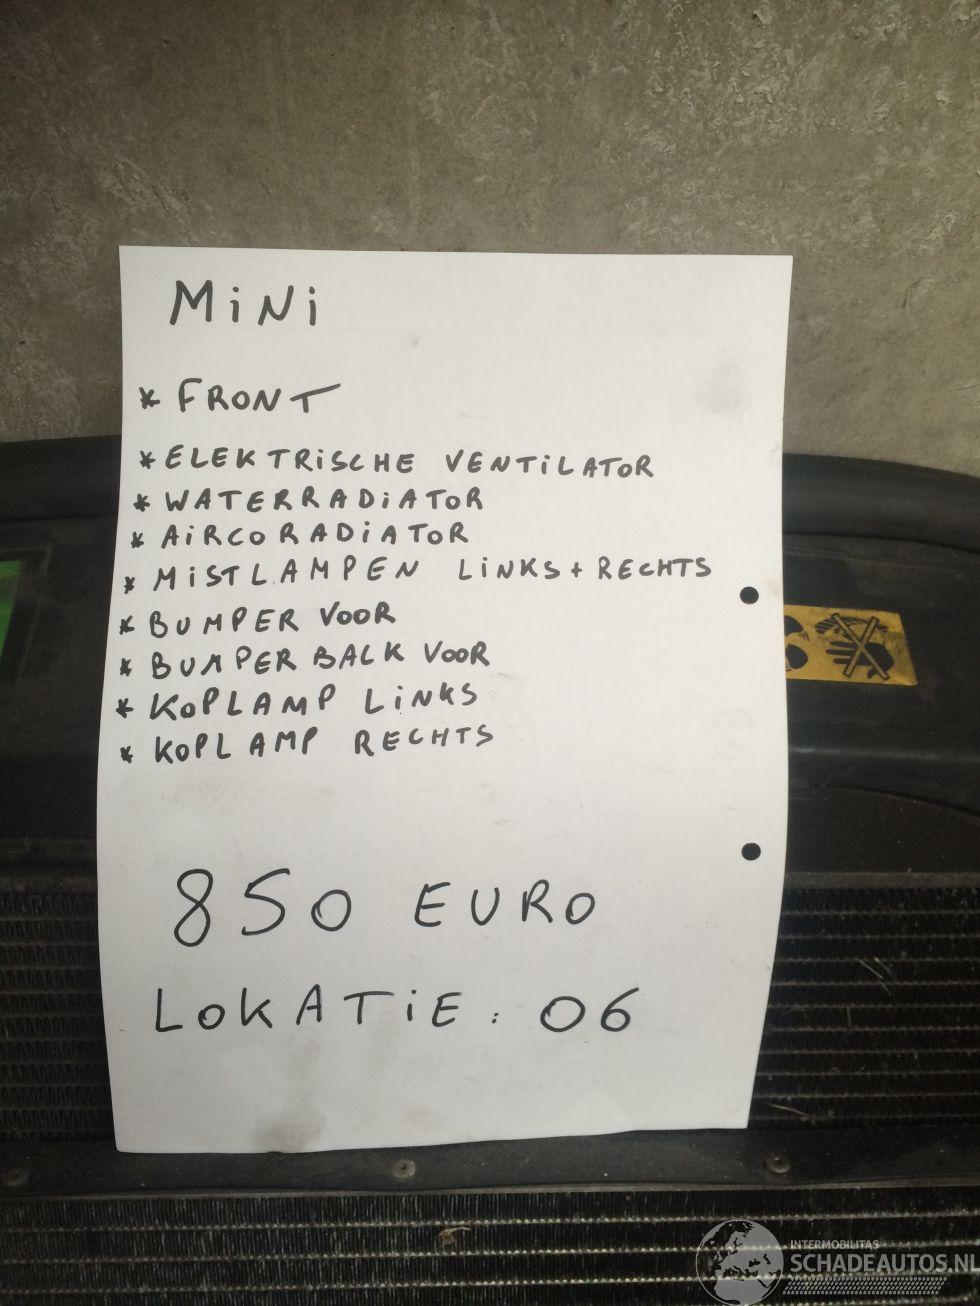 MiNi
* FRONT
* ELEKTRiSCHE VENTiLATOR
* WATERRADiATOR
* AiRCORADiATOR
* MiSTLAMPEN LiNKS + RECHTS
* BUMPER VOOR
* BUMPERBALK VOOR
* KOPLAMP LiNKS
* KOPLAMP RECHTS
850 EURO
LOKATiE: 06
INTERMOBILITAS
SCHADEAUTOS.NL